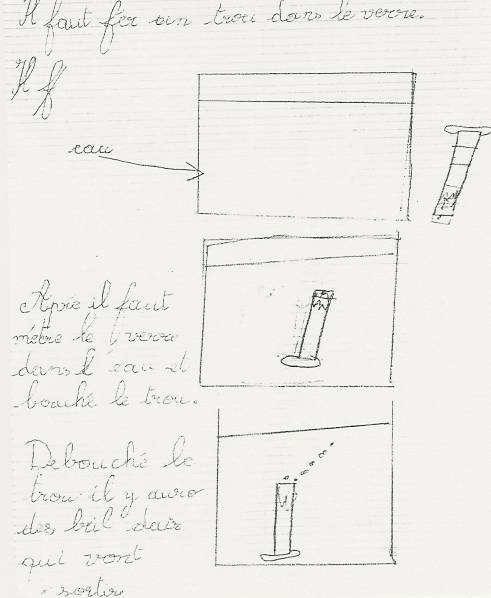 Il faut fer un trou dans le verre.
Il f
eau
Aprè il faut
mètre le verre
dans l'eau et
bouché le trou.
Debouché le
trou il y aura
des bul dair
qui vont
sortir